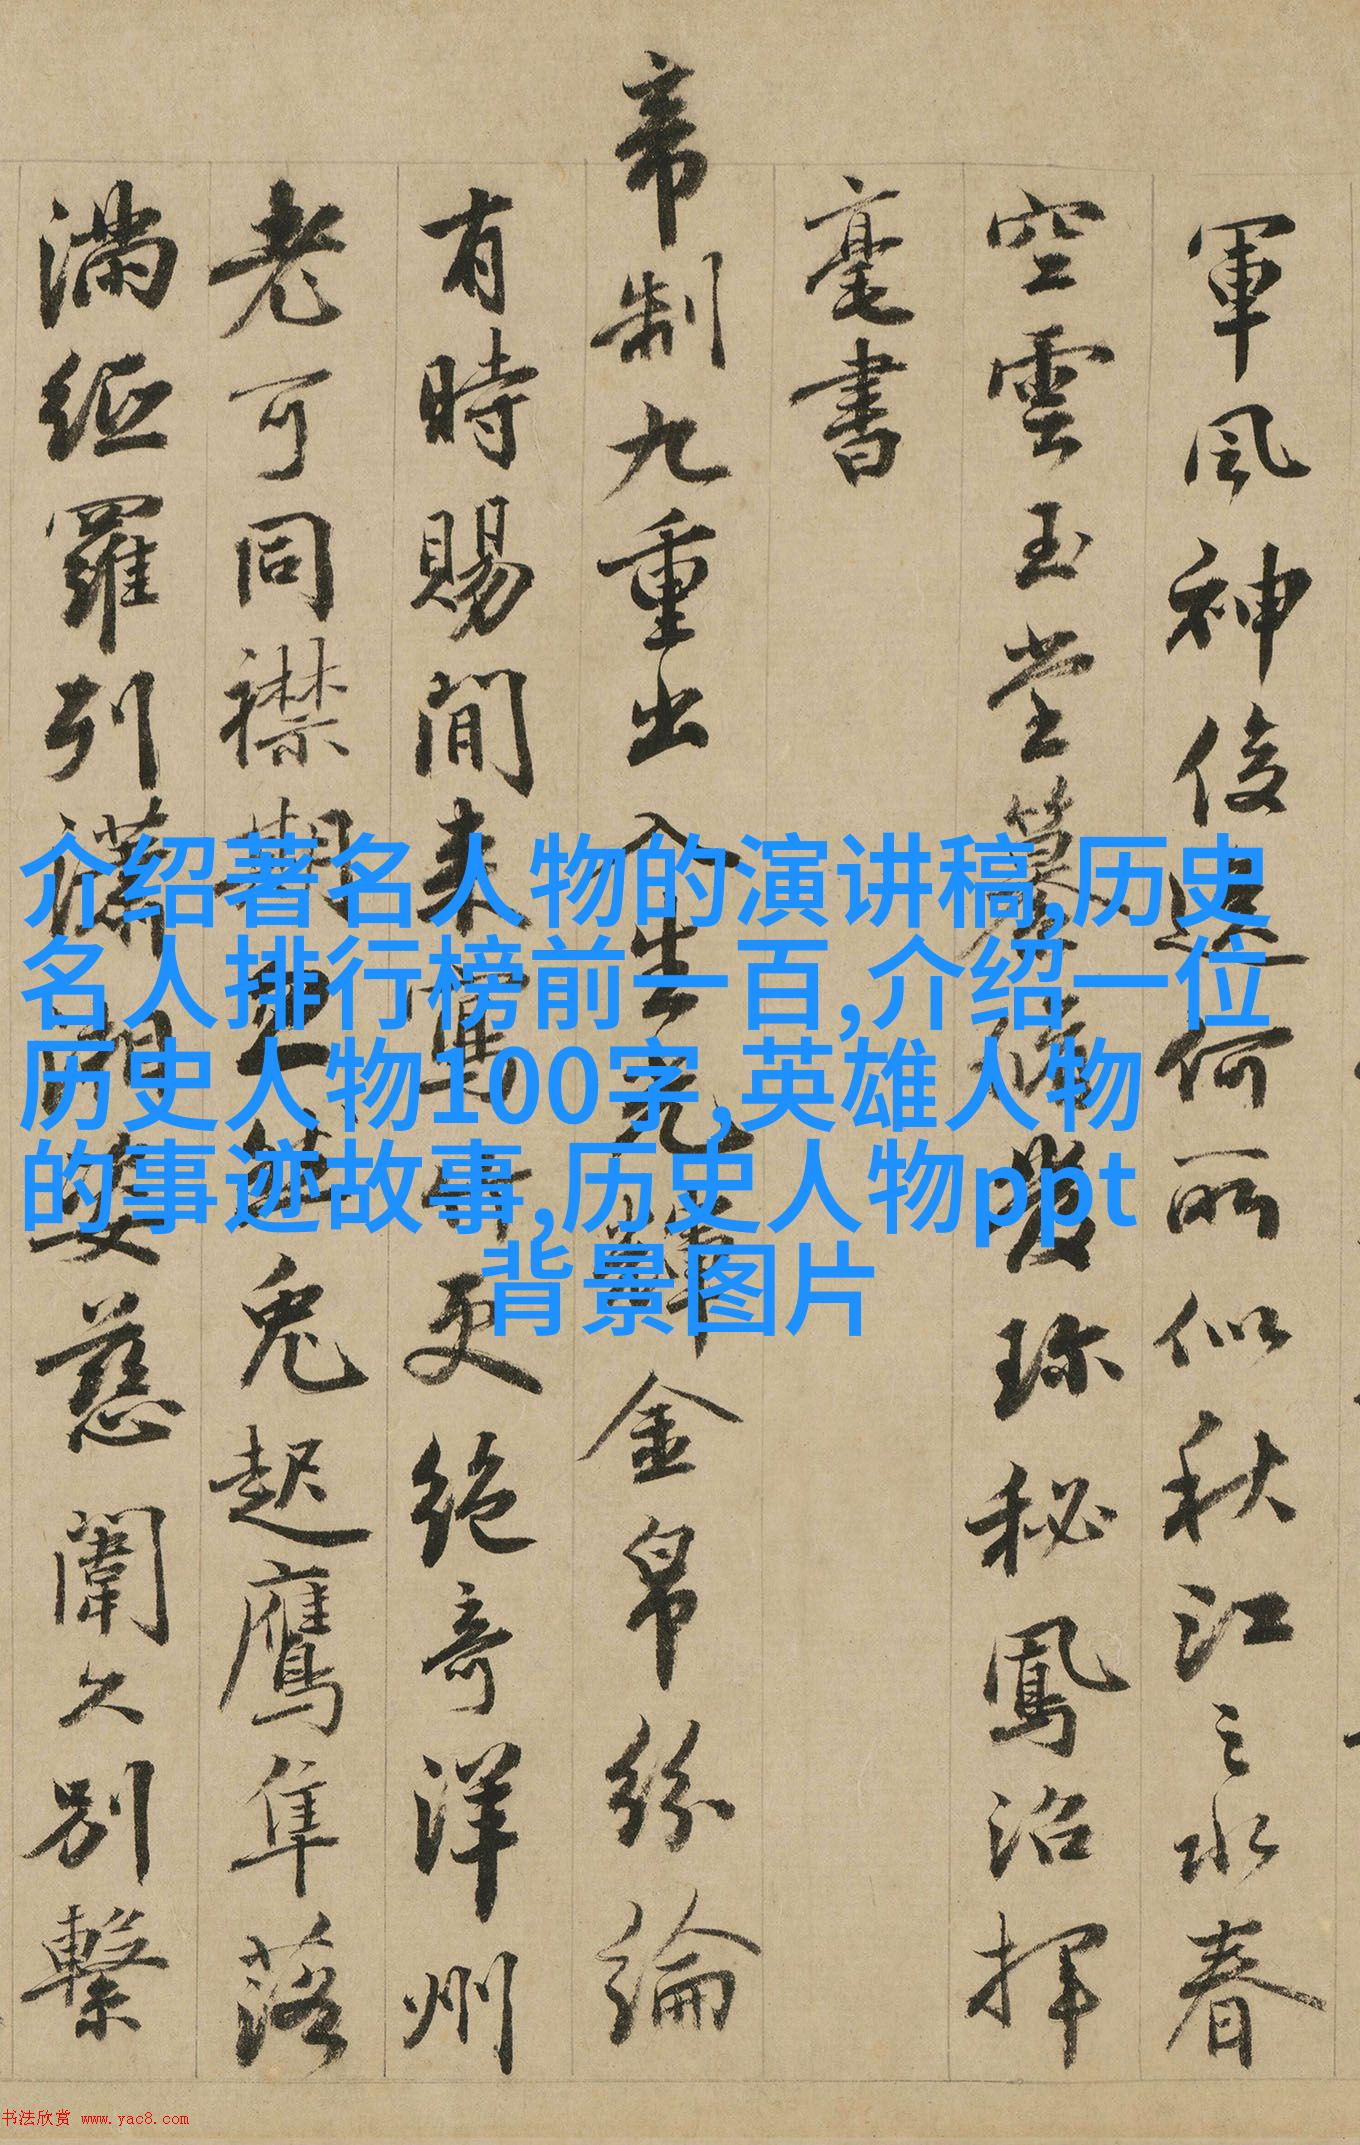 軍風神俊邁何所似秋江之水春
空雲玉堂篆發珍秘鳳沼揮
毫書
帝制九重出入生光輝金帛紛綸
有時賜閒來寓更絕奇洋州
老可同襟期兔起鷹隼落
滿紙羅列瀟湘姿慈闈久別繫
介绍著名人物的演讲稿,历史
名人排行榜前一百,介绍一位
历史人物100字,英雄人物
的事迹故事,历史人物ppt
背景图片
书法欣赏 www.yac8.com